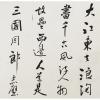 大江東去浪淘
盡千古風流人物
故壘西邊人道是
三國周郎赤壁